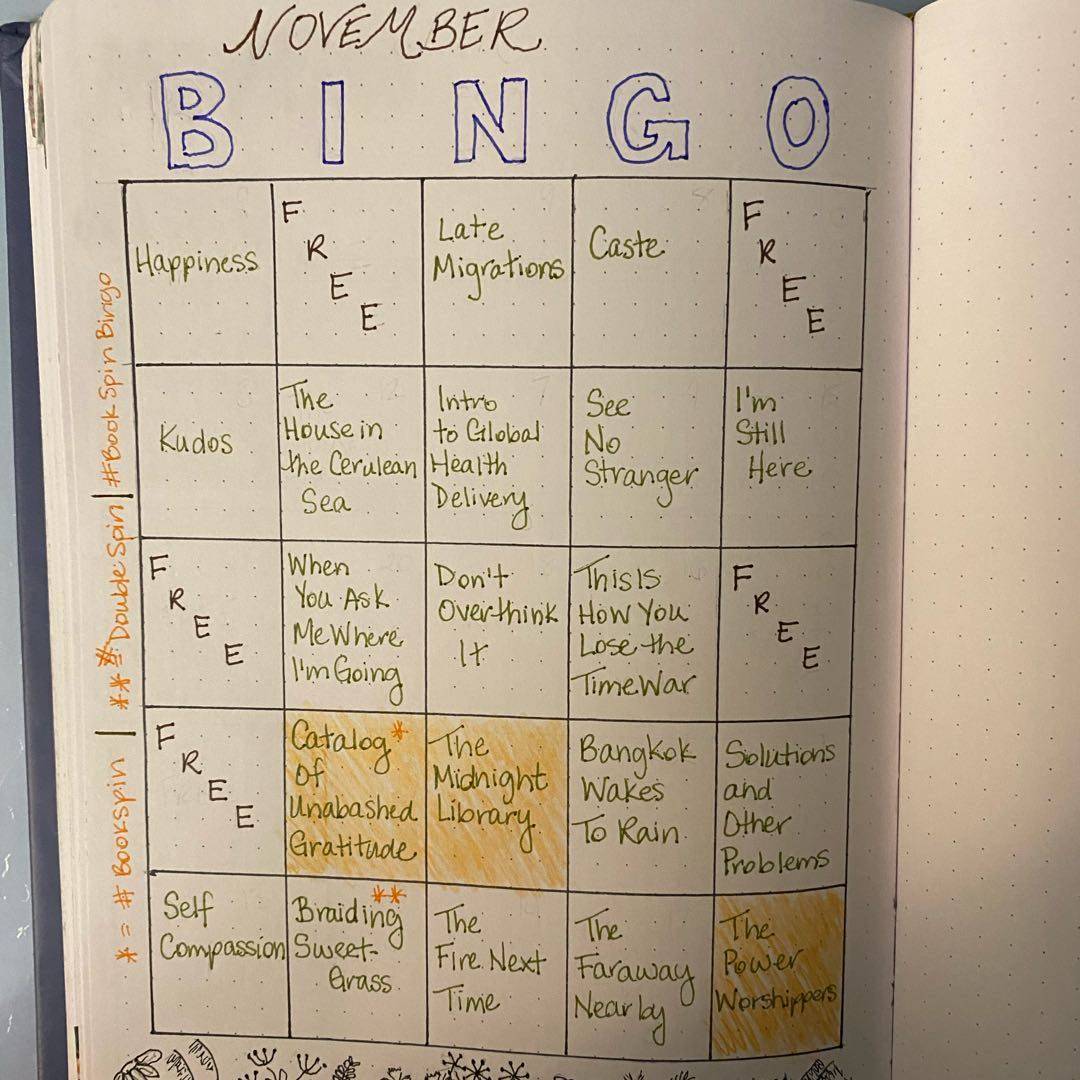 NOVEMBER
B I N G O
Happiness
F
R
E
E
Late
Migrations
Caste
F
R
E
E
Kudos
The
House in
the Cerulean
Sea
Intro
to Global
Health
Delivery
See
No
Stranger
I'm
Still
Here
F
R
E
E
When
You Ask
Me Where
I'm Going
Don't
Overthink
It
This Is
How You
Lose the
Time War
F
R
E
E
F
R
E
E
Catalog*
Of
Unabashed
Gratitude
The
Midnight
Library
Bangkok
Wakes
To Rain
Solutions
and
Other
Problems
Self
Compassion
**
Braiding
Sweet-
Grass
The
Fire Next
Time
The
Faraway
Nearby
The
Power
Worshippers
* = # Bookspin | ** = Double Spin | #Book Spin Bingo